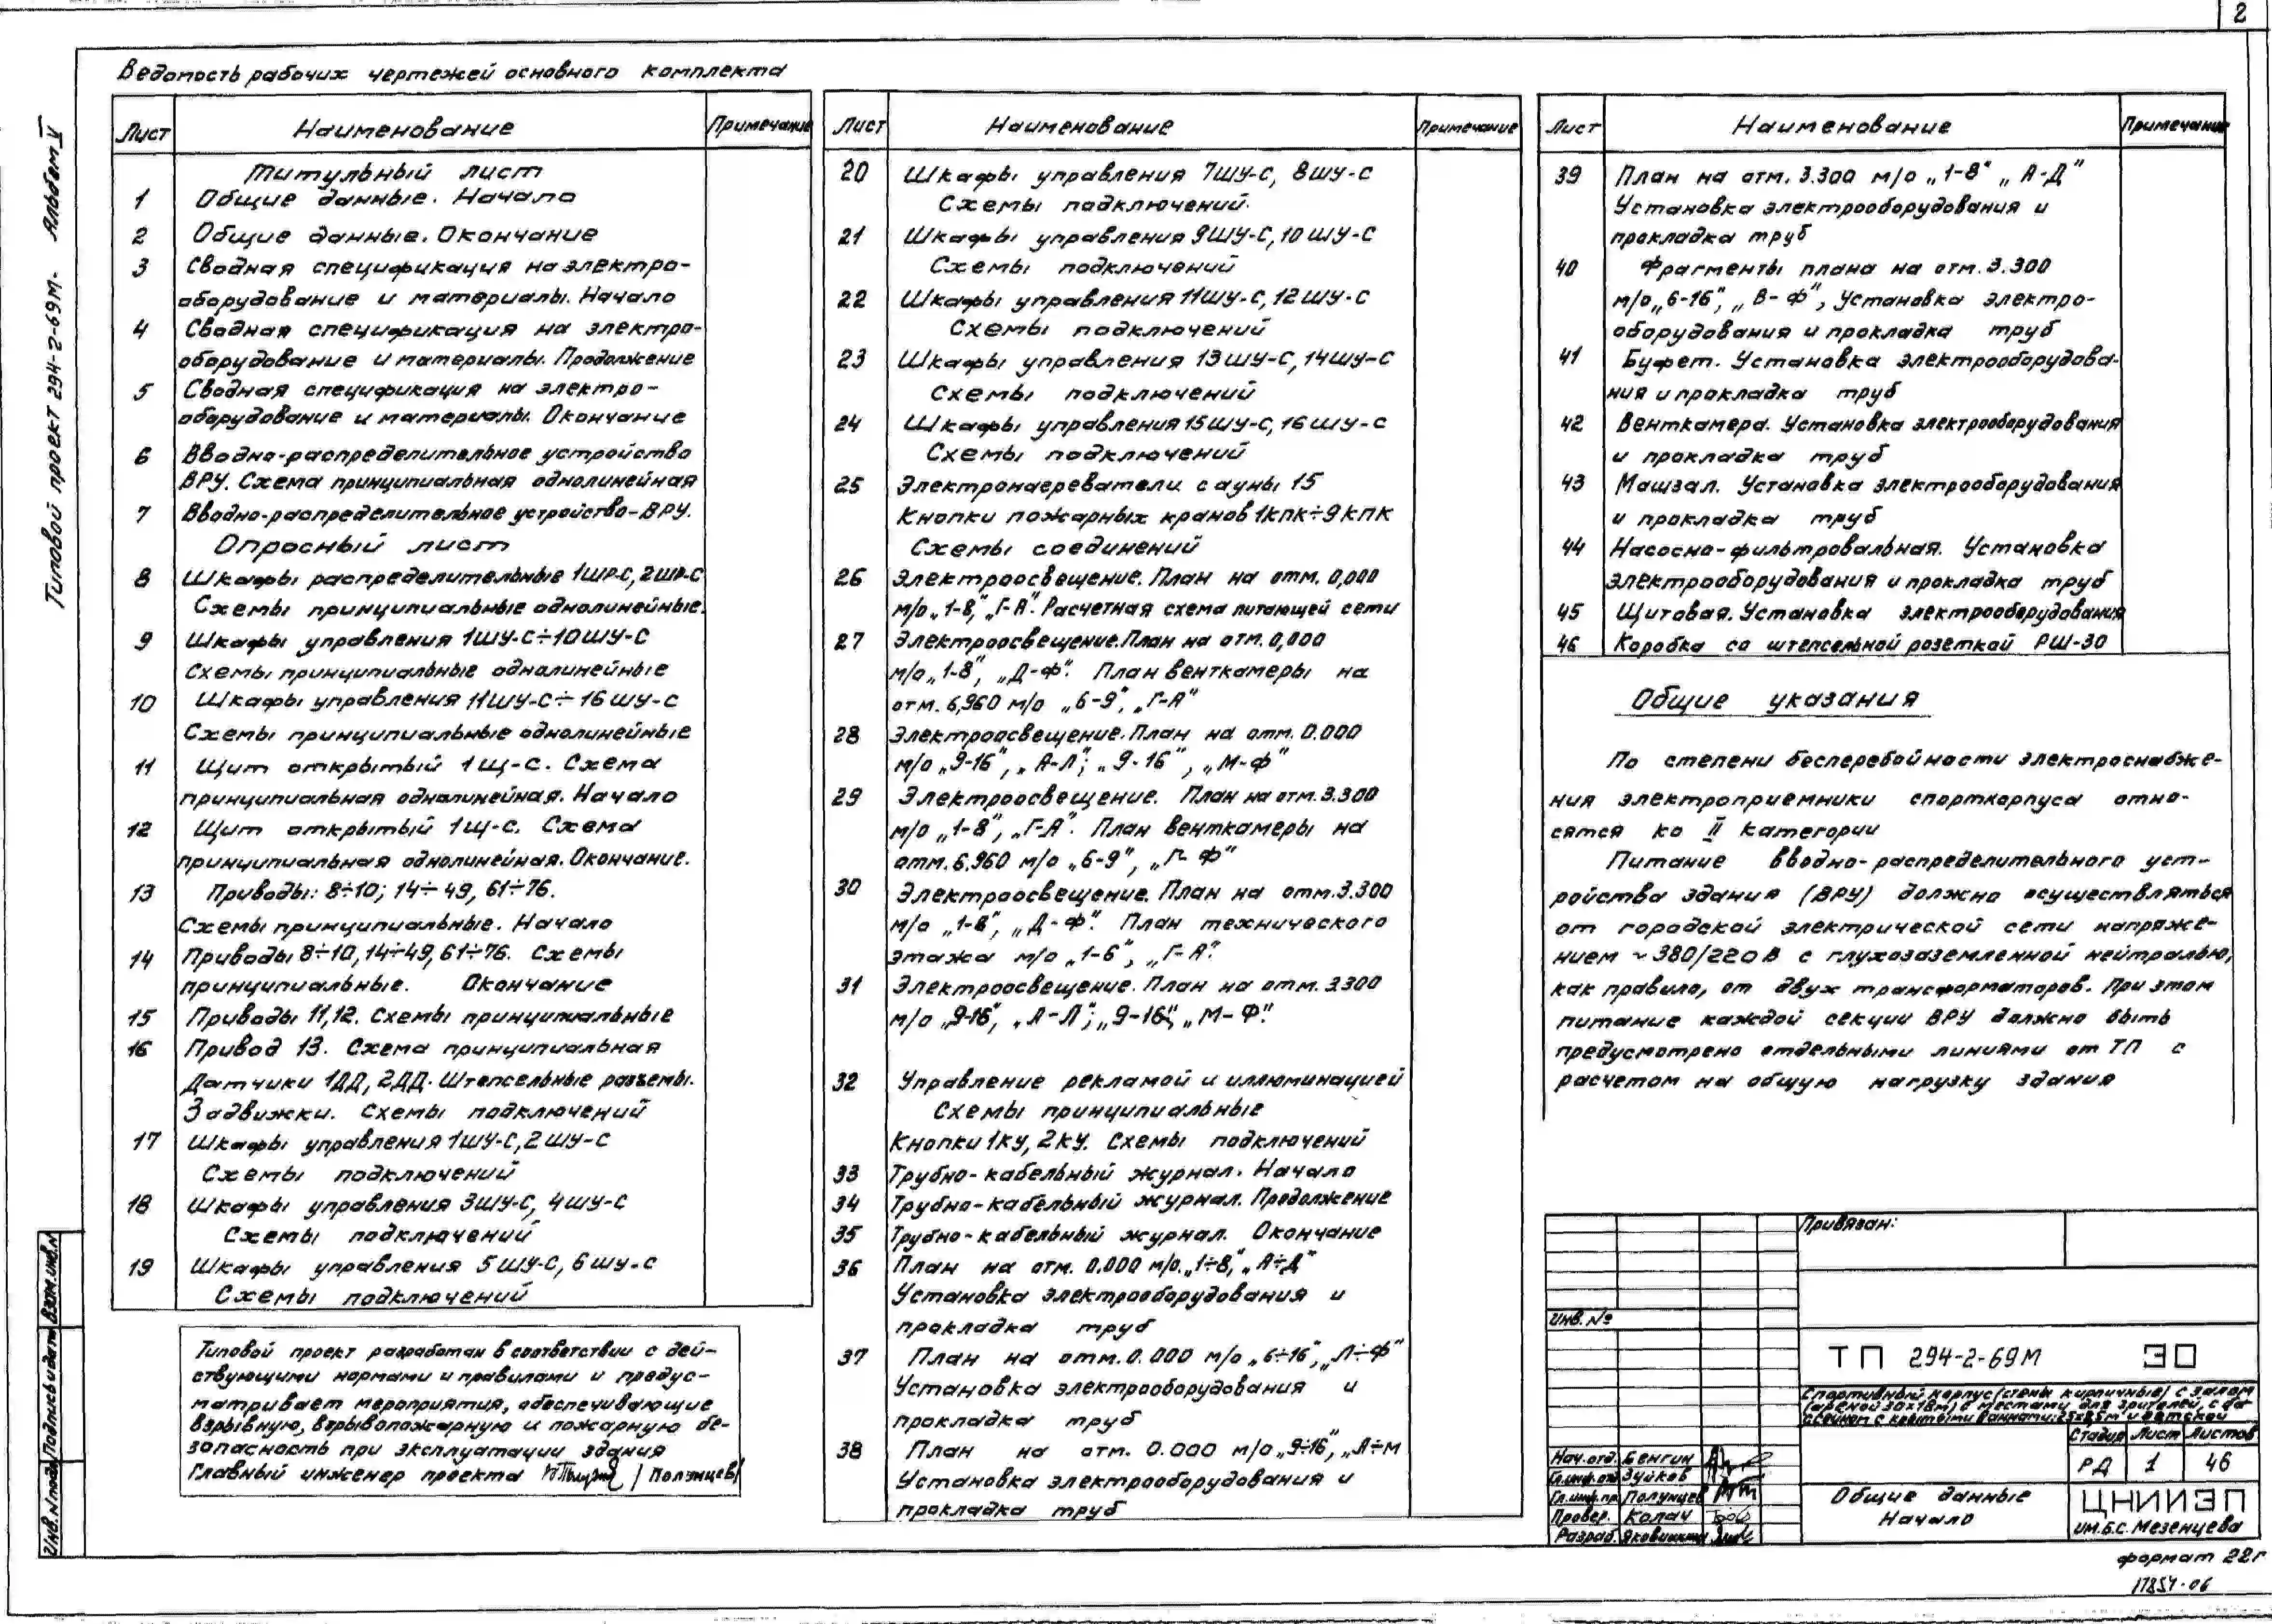 2
Типовой проект 294-2-69м. Альбом V
Ведомость рабочих чертежей основного комплекта
Лист Наименование Примечание
Титульный лист
1 Общие данные. Начало
2 Общие данные. Окончание
3 Сводная спецификация на электро-
оборудование и материалы. Начало
4 Сводная спецификация на электро-
оборудование и материалы. Продолжение
5 Сводная спецификация на электро-
оборудование и материалы. Окончание
6 Вводно-распределительное устройство
ВРУ. Схема принципиальная однолинейная
7 Вводно-распределительное устройство-ВРУ.
Опросный лист
8 Шкафы распределительные 1ШР-С, 2ШР-С
Схемы принципиальные однолинейные.
9 Шкафы управления 1ШУ-С÷10ШУ-С
Схемы принципиальные однолинейные
10 Шкафы управления 11ШУ-С÷16ШУ-С
Схемы принципиальные однолинейные
11 Щит открытый 1Щ-С. Схема
принципиальная однолинейная. Начало
12 Щит открытый 1Щ-С. Схема
принципиальная однолинейная. Окончание.
13 Приводы: 8÷10; 14÷49, 61÷76.
Схемы принципиальные. Начало
14 Приводы 8÷10, 14÷49, 61÷76. Схемы
принципиальные. Окончание
15 Приводы 11,12. Схемы принципиальные
16 Привод 13. Схема принципиальная
Датчики 1ДД, 2ДД. Штепсельные разъемы.
Задвижки. Схемы подключений
17 Шкафы управления 1ШУ-С, 2ШУ-С
Схемы подключений
18 Шкафы управления 3ШУ-С, 4ШУ-С
Схемы подключений
19 Шкафы управления 5ШУ-С, 6ШУ-С
Схемы подключений
Типовой проект разработан в соответствии с дей-
ствующими нормами и правилами и предус-
матривает мероприятия, обеспечивающие
взрывную, взрывопожарную и пожарную бе-
зопасность при эксплуатации здания
Главный инженер проекта /Полунцев/
Лист Наименование Примечание
20 Шкафы управления 7ШУ-С, 8ШУ-С
Схемы подключений.
21 Шкафы управления 9ШУ-С, 10ШУ-С
Схемы подключений
22 Шкафы управления 11ШУ-С, 12ШУ-С
Схемы подключений
23 Шкафы управления 13ШУ-С, 14ШУ-С
Схемы подключений
24 Шкафы управления 15ШУ-С, 16ШУ-С
Схемы подключений
25 Электронагреватели сауны 15
Кнопки пожарных кранов 1КПК÷9КПК
Схемы соединений
26 Электроосвещение. План на отм. 0,000
м/о „1-8", „Г-А". Расчетная схема питающей сети
27 Электроосвещение. План на отм. 0,000
м/о „1-8", „Д-Ф". План венткамеры на
отм. 6,960 м/о „6-9", „Г-А"
28 Электроосвещение. План на отм. 0.000
м/о „9-16", „А-Л"; „9-16", „М-Ф"
29 Электроосвещение. План на отм. 3.300
м/о „1-8", „Г-А". План венткамеры на
отм. 6.960 м/о „6-9", „Г-Ф"
30 Электроосвещение. План на отм. 3.300
м/о „1-8", „Д-Ф". План технического
этажа м/о „1-6", „Г-А".
31 Электроосвещение. План на отм. 3300
м/о „9-16", „А-Л"; „9-16", „М-Ф".
32 Управление рекламой и иллюминацией
Схемы принципиальные
Кнопки 1КУ, 2КУ. Схемы подключений
33 Трубно-кабельный журнал. Начало
34 Трубно-кабельный журнал. Продолжение
35 Трубно-кабельный журнал. Окончание
36 План на отм. 0.000 м/о „1÷8", „А÷Д"
Установка электрооборудования и
прокладка труб
37 План на отм. 0.000 м/о „6÷16", „Л÷Ф"
Установка электрооборудования и
прокладка труб
38 План на отм. 0.000 м/о „9÷16", „Л÷М
Установка электрооборудования и
прокладка труб
Лист Наименование Примечание
39 План на отм. 3.300 м/о „1-8" „А-Д"
Установка электрооборудования и
прокладка труб
40 Фрагменты плана на отм. 3.300
м/о „6-16", „В-Ф", Установка электро-
оборудования и прокладка труб
41 Буфет. Установка электрооборудова-
ния и прокладка труб
42 Венткамера. Установка электрооборудования
и прокладка труб
43 Машзал. Установка электрооборудования
и прокладка труб
44 Насосно-фильтровальная. Установка
электрооборудования и прокладка труб
45 Щитовая. Установка электрооборудования
46 Коробка со штепсельной розеткой РШ-30
Общие указания
По степени бесперебойности электроснабже-
ния электроприемники спорткорпуса отно-
сятся ко II категории
Питание вводно-распределительного уст-
ройства здания (ВРУ) должно осуществляться
от городской электрической сети напряже-
нием ~380/220В с глухозаземленной нейтралью,
как правило, от двух трансформаторов. При этом
питание каждой секции ВРУ должно быть
предусмотрено отдельными линиями от ТП с
расчетом на общую нагрузку здания
Привязан:
Инв. №
ТП 294-2-69М ЭО
Спортивный корпус (стены кирпичные) с залом
(ареной 30х18м) с местами для зрителей, с ба
ссейном с крытыми ваннами: 25х8,5м и детской
Стадия Лист Листов
РД 1 46
Нач.отд. Бенгин
Гл.инж.отд Зуйков
Гл.инж.пр. Полунцев
Провер. Колач
Разраб.
Общие данные
Начало
ЦНИИЭП
им.Б.С.Мезенцева
Инв.N подл. Подпись и дата Взам.инв.N
формат 22г
17854-06